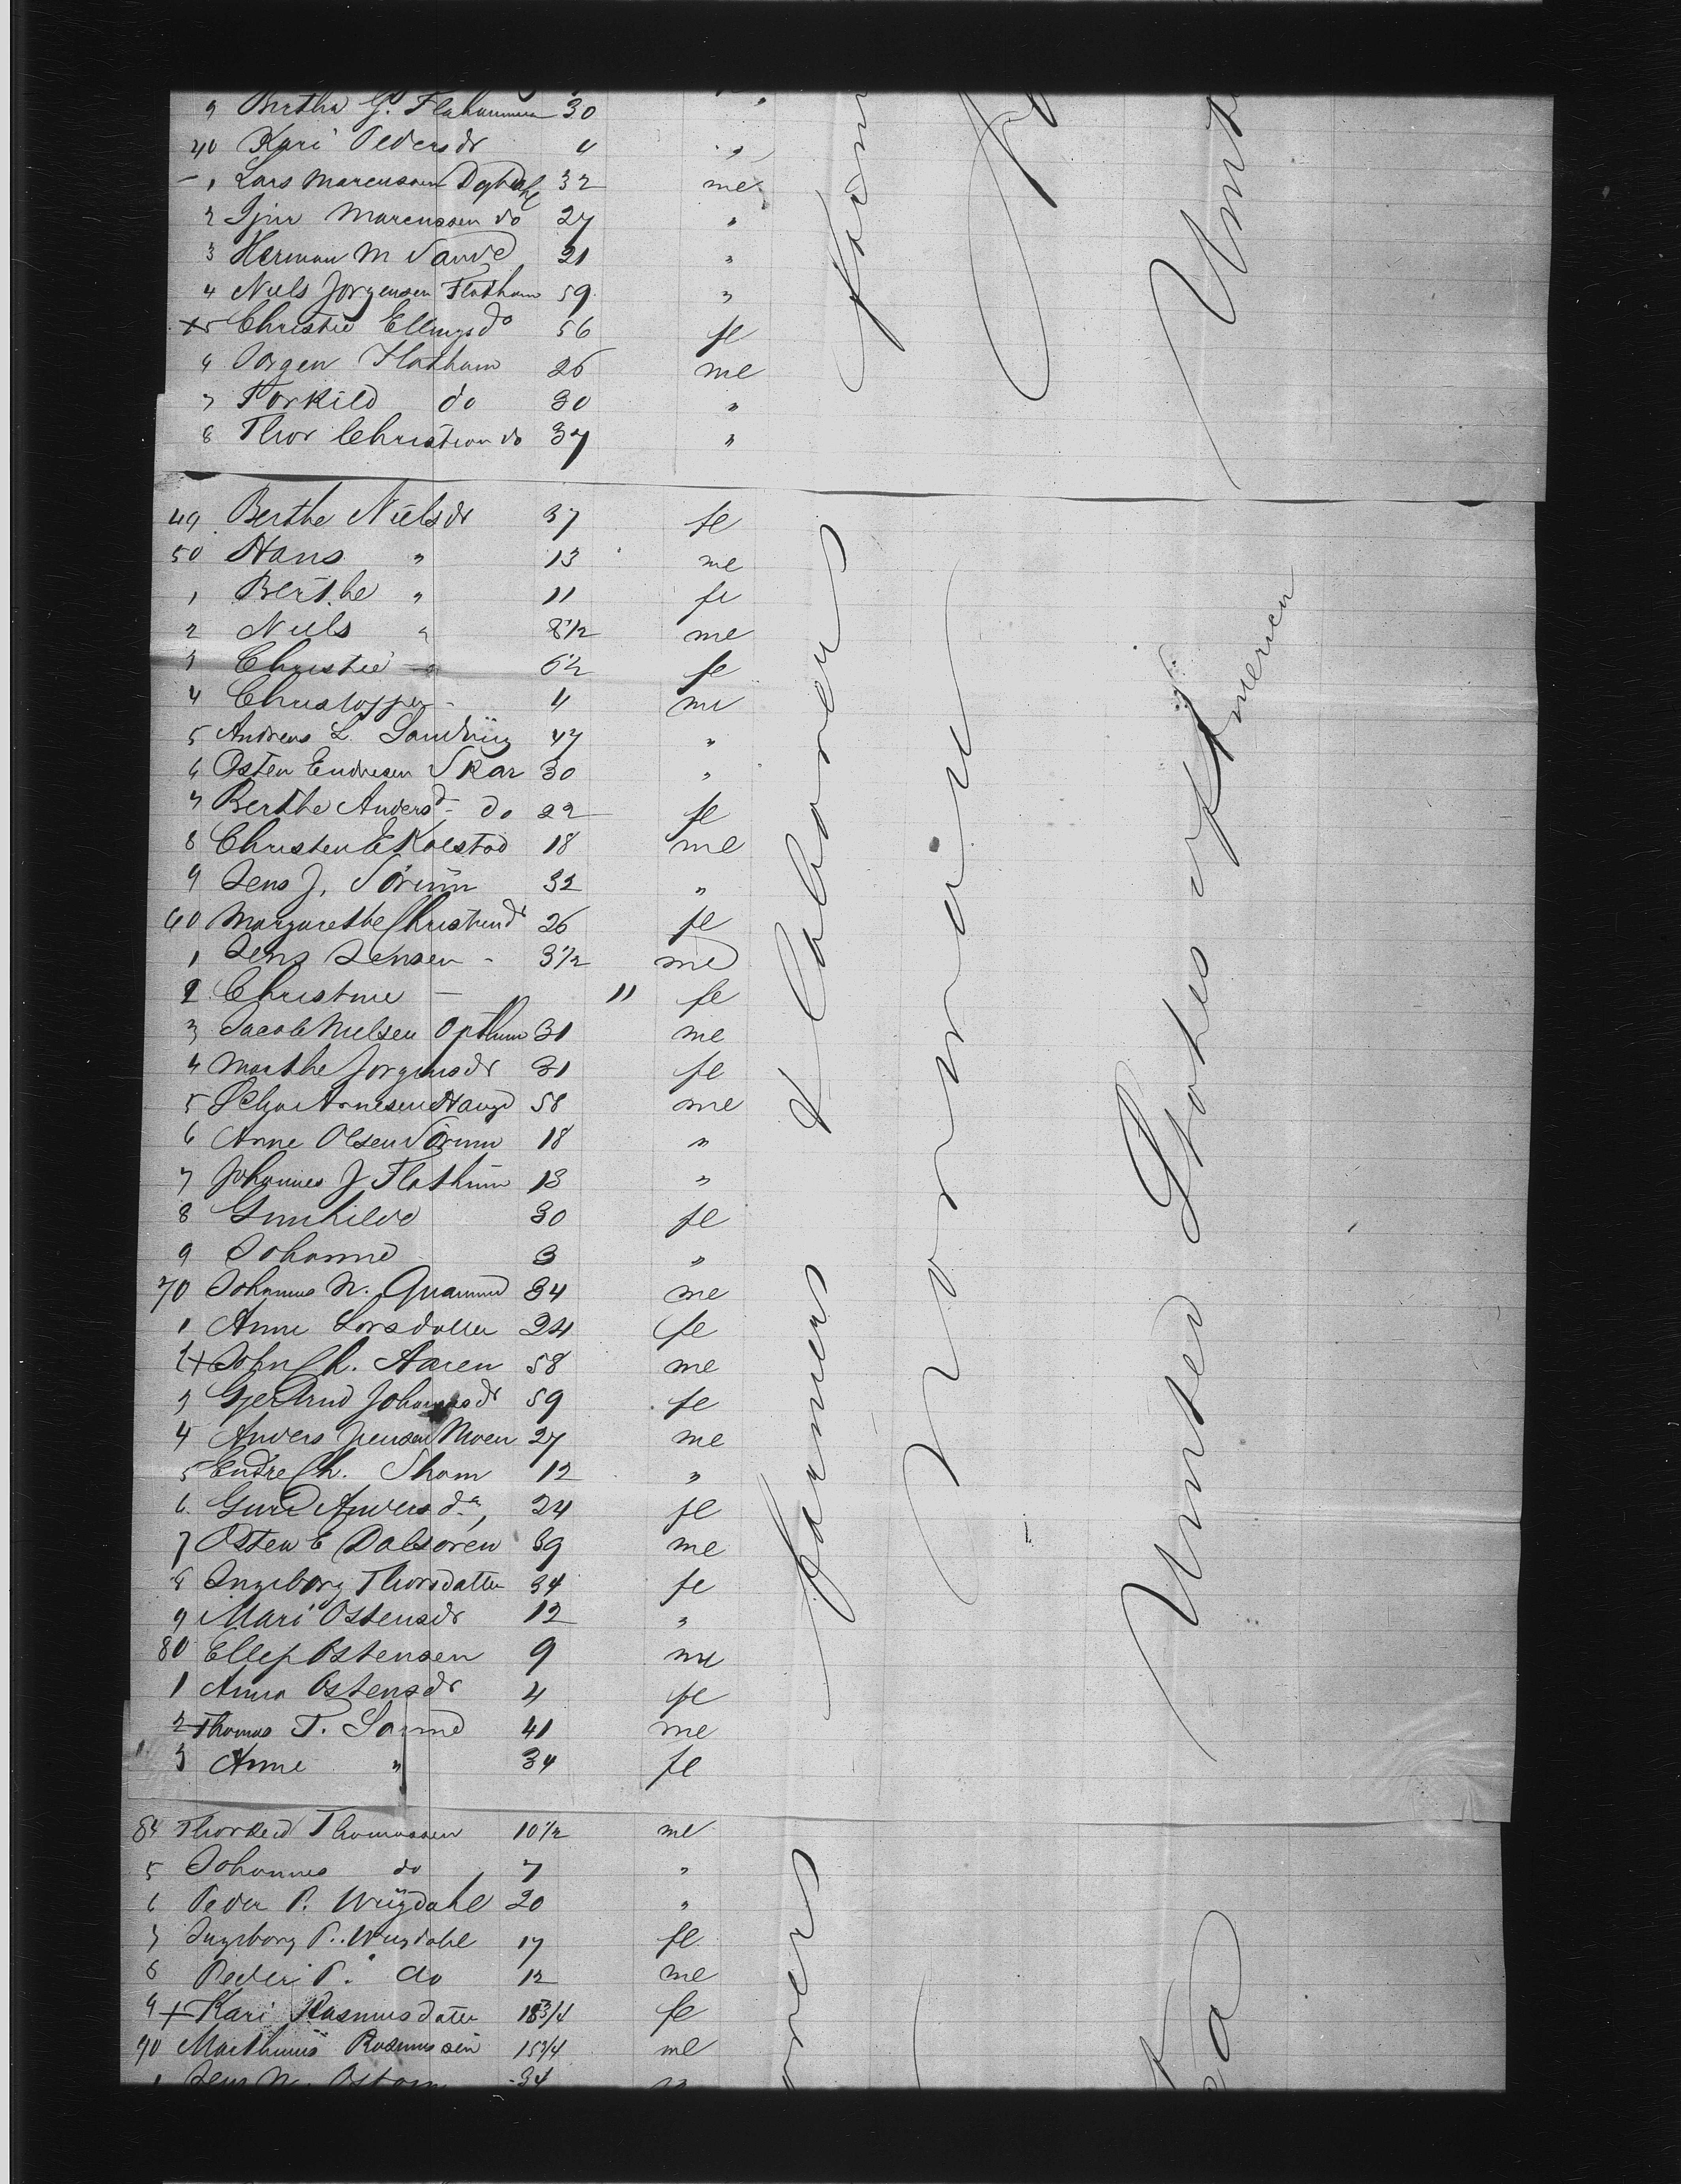 9 Bertha G. Flahammer 30 "
40 Kari Pedersdr 4 "
1 Lars Marcussen 32 me
2 Marcussen do 27 "
3 Herman M Sande 21 "
4 Niels Jorgensen Flatham 59 "
5 Christie Ellingsd 56 fe
6 Jorgen Flatham 26 me
7 Torkild do 30 "
8 Thor Christian do 37 "
49 Berthe Nielsdr 37 fe
50 Hans " 13 me
1 Berthe " 11 fe
2 Niels " 8 1/2 me
3 Christie " 6 1/2 fe
4 Christopper " 4 me
5 Andreas L. Sandvig 47 "
6 Osten Endresen Skar 30 "
7 Berthe Andersd do 22 fe
8 Christen E Kolstad 18 me
9 Jens J. Sörum 32 "
60 Margarethe Christend 26 fe
1 Jens Jensen - 3 1/2 me
2 Christine — " 11 fe
3 Jacob Nielsen Opthun 31 me
4 Marthe Jorgensdr 31 fe
5 Arnesen Hauge 58 me
6 Anne Olsen Sörum 18 "
7 Johannes J Flathum 13 "
8 Gunhild 30 fe
9 Johanne 3 "
70 Johannes N. Quamme 34 me
1 Anne Larsdatter 24 fe
2 + John Ch. Aaren 58 me
3 Gjertrud Johannesdr 59 fe
4 Anders Jensen Moen 27 me
5 Endre Ch. Sham 12 "
6 Guri Andersda 24 fe
7 Osten E Dalsoren 39 me
8 Ingeborg Thorsdatter 34 fe
9 Mari Ostensdr 12 "
80 Ellef Ostensen 9 me
1 Anna Ostensdr 4 fe
2 Thomas T. 41 me
3 Anne " 34 fe
84 Thorkild Thomassen 10 1/2 me
5 Johannes do 7 "
6 Peder P. Wigdahl 20 "
7 Ingeborg P. Wigdahl 17 fe
8 Peder P. do 12 me
9 + Kari Rasmusdatter 18 3/4 fe
90 Marthinus Rasmussen 15 3/4 me
1 Jens N. 34
Farmers & Labourers
Norwegian
United States of America